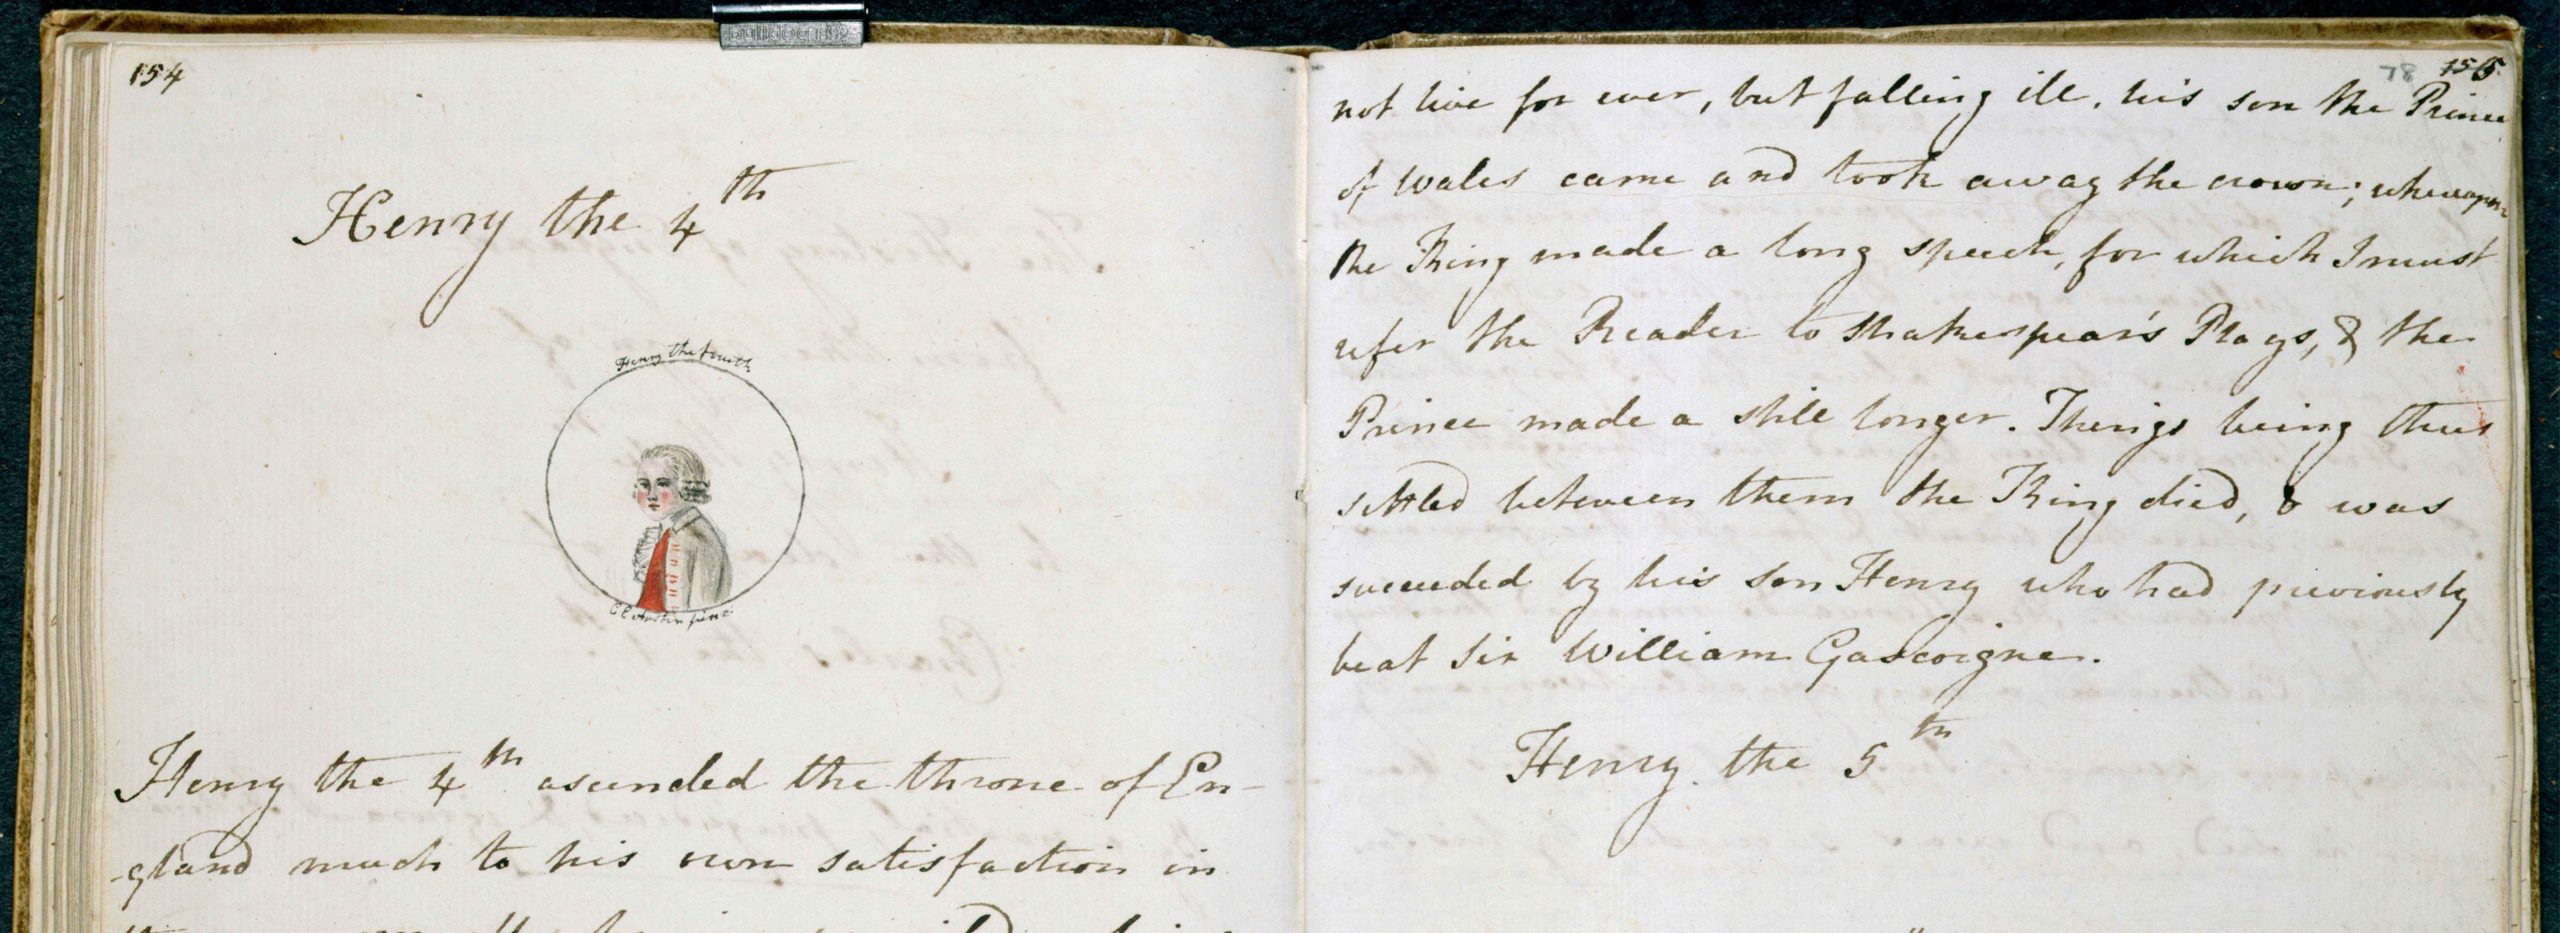 154
Henry the 4th
Henry the fourth
C E Austin pinx:
Henry the 4th ascended the throne of En-
-gland much to his own satisfaction in
78 155
not live for ever, but falling ill, his son the Prince
of Wales came and took away the crown; whereupon
the King made a long speech, for which I must
refer the Reader to Shakespear's Plays, & the
Prince made a still longer. Things being thus
settled between them the King died, & was
succeeded by his son Henry who had previously
beat Sir William Gascoigne.
Henry the 5th